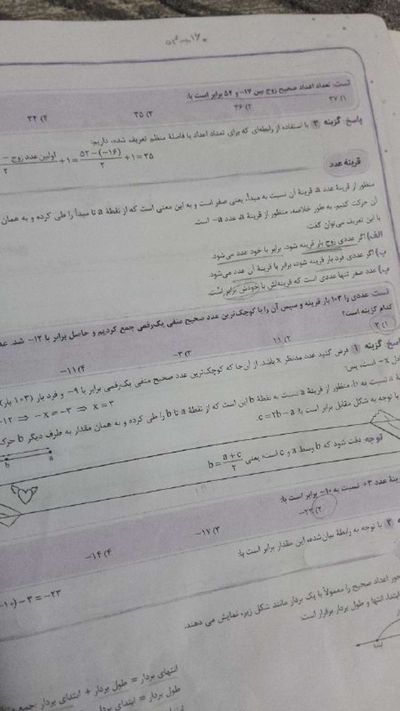 تست: تعداد اعداد صحیح زوج بین ۱۷- و ۵۴ برابر است با:
۱) ۳۷ ۲) ۳۶ ۳) ۳۵ ۴) ۳۴
پاسخ: گزینه ۳ با استفاده از رابطه‌ای که برای تعداد اعداد با فاصلهٔ منظم تعریف شده، داریم:
اولین عدد زوج - / ۲ + ۱ = (۵۲ - (-۱۶)) / ۲ + ۱ = ۳۵
قرینهٔ عدد
منظور از قرینهٔ عدد a قرینهٔ آن نسبت به مبدأ، یعنی صفر است و به این معنی است که از نقطهٔ a تا مبدأ را طی کرده و به همان
آن حرکت کنیم. به طور خلاصه، منظور از قرینهٔ a عدد -a است.
با این تعریف می‌توان گفت:
الف) اگر عددی زوج بار قرینه شود، برابر با خود عدد می‌شود.
ب) اگر عددی فرد بار قرینه شود، برابر با قرینهٔ آن عدد می‌شود.
پ) عدد صفر تنها عددی است که قرینه‌اش با خودش برابر است.
تست: عددی را ۱۰۳ بار قرینه و سپس آن را با کوچک‌ترین عدد صحیح منفی یک‌رقمی جمع کردیم و حاصل برابر با ۱۲- شد.
کدام گزینه است؟
۱) ۳ ۲) ۱۱ ۳) ۳- ۴) ۱۱-
پاسخ: گزینه ۱ فرض کنید عدد مدنظر x باشد. از آن‌جا که کوچک‌ترین عدد صحیح منفی یک‌رقمی برابر با ۹- و فرد بار (۱۰۳ بار)
-x است، پس:
-۱۲ ⇒ -x = -۳ ⇒ x = ۳
نسبت به b، منظور از قرینهٔ a نسبت به نقطهٔ b این است که از نقطهٔ a تا b را طی کرده و به همان مقدار به طرف دیگر b حرکت
با توجه به شکل مقابل برابر است با: c = ۲b - a
a b
توجه: دقت شود که b وسط a و c است؛ یعنی b = (a + c) / ۲
قرینهٔ عدد ۳+ نسبت به ۱۰- برابر است با:
۲) ۲۳- ۳) ۱۷- ۴) ۱۴-
با توجه به رابطهٔ بیان‌شده، این مقدار برابر است با:
-۱۰) - ۳ = -۲۳
محور اعداد صحیح را معمولاً با یک بردار مانند شکل زیر، نمایش می‌دهند.
ابتدا، انتها و طول بردار برقرار است
ابتدا
انتهای بردار = طول بردار + ابتدای بردار
طول بردار =